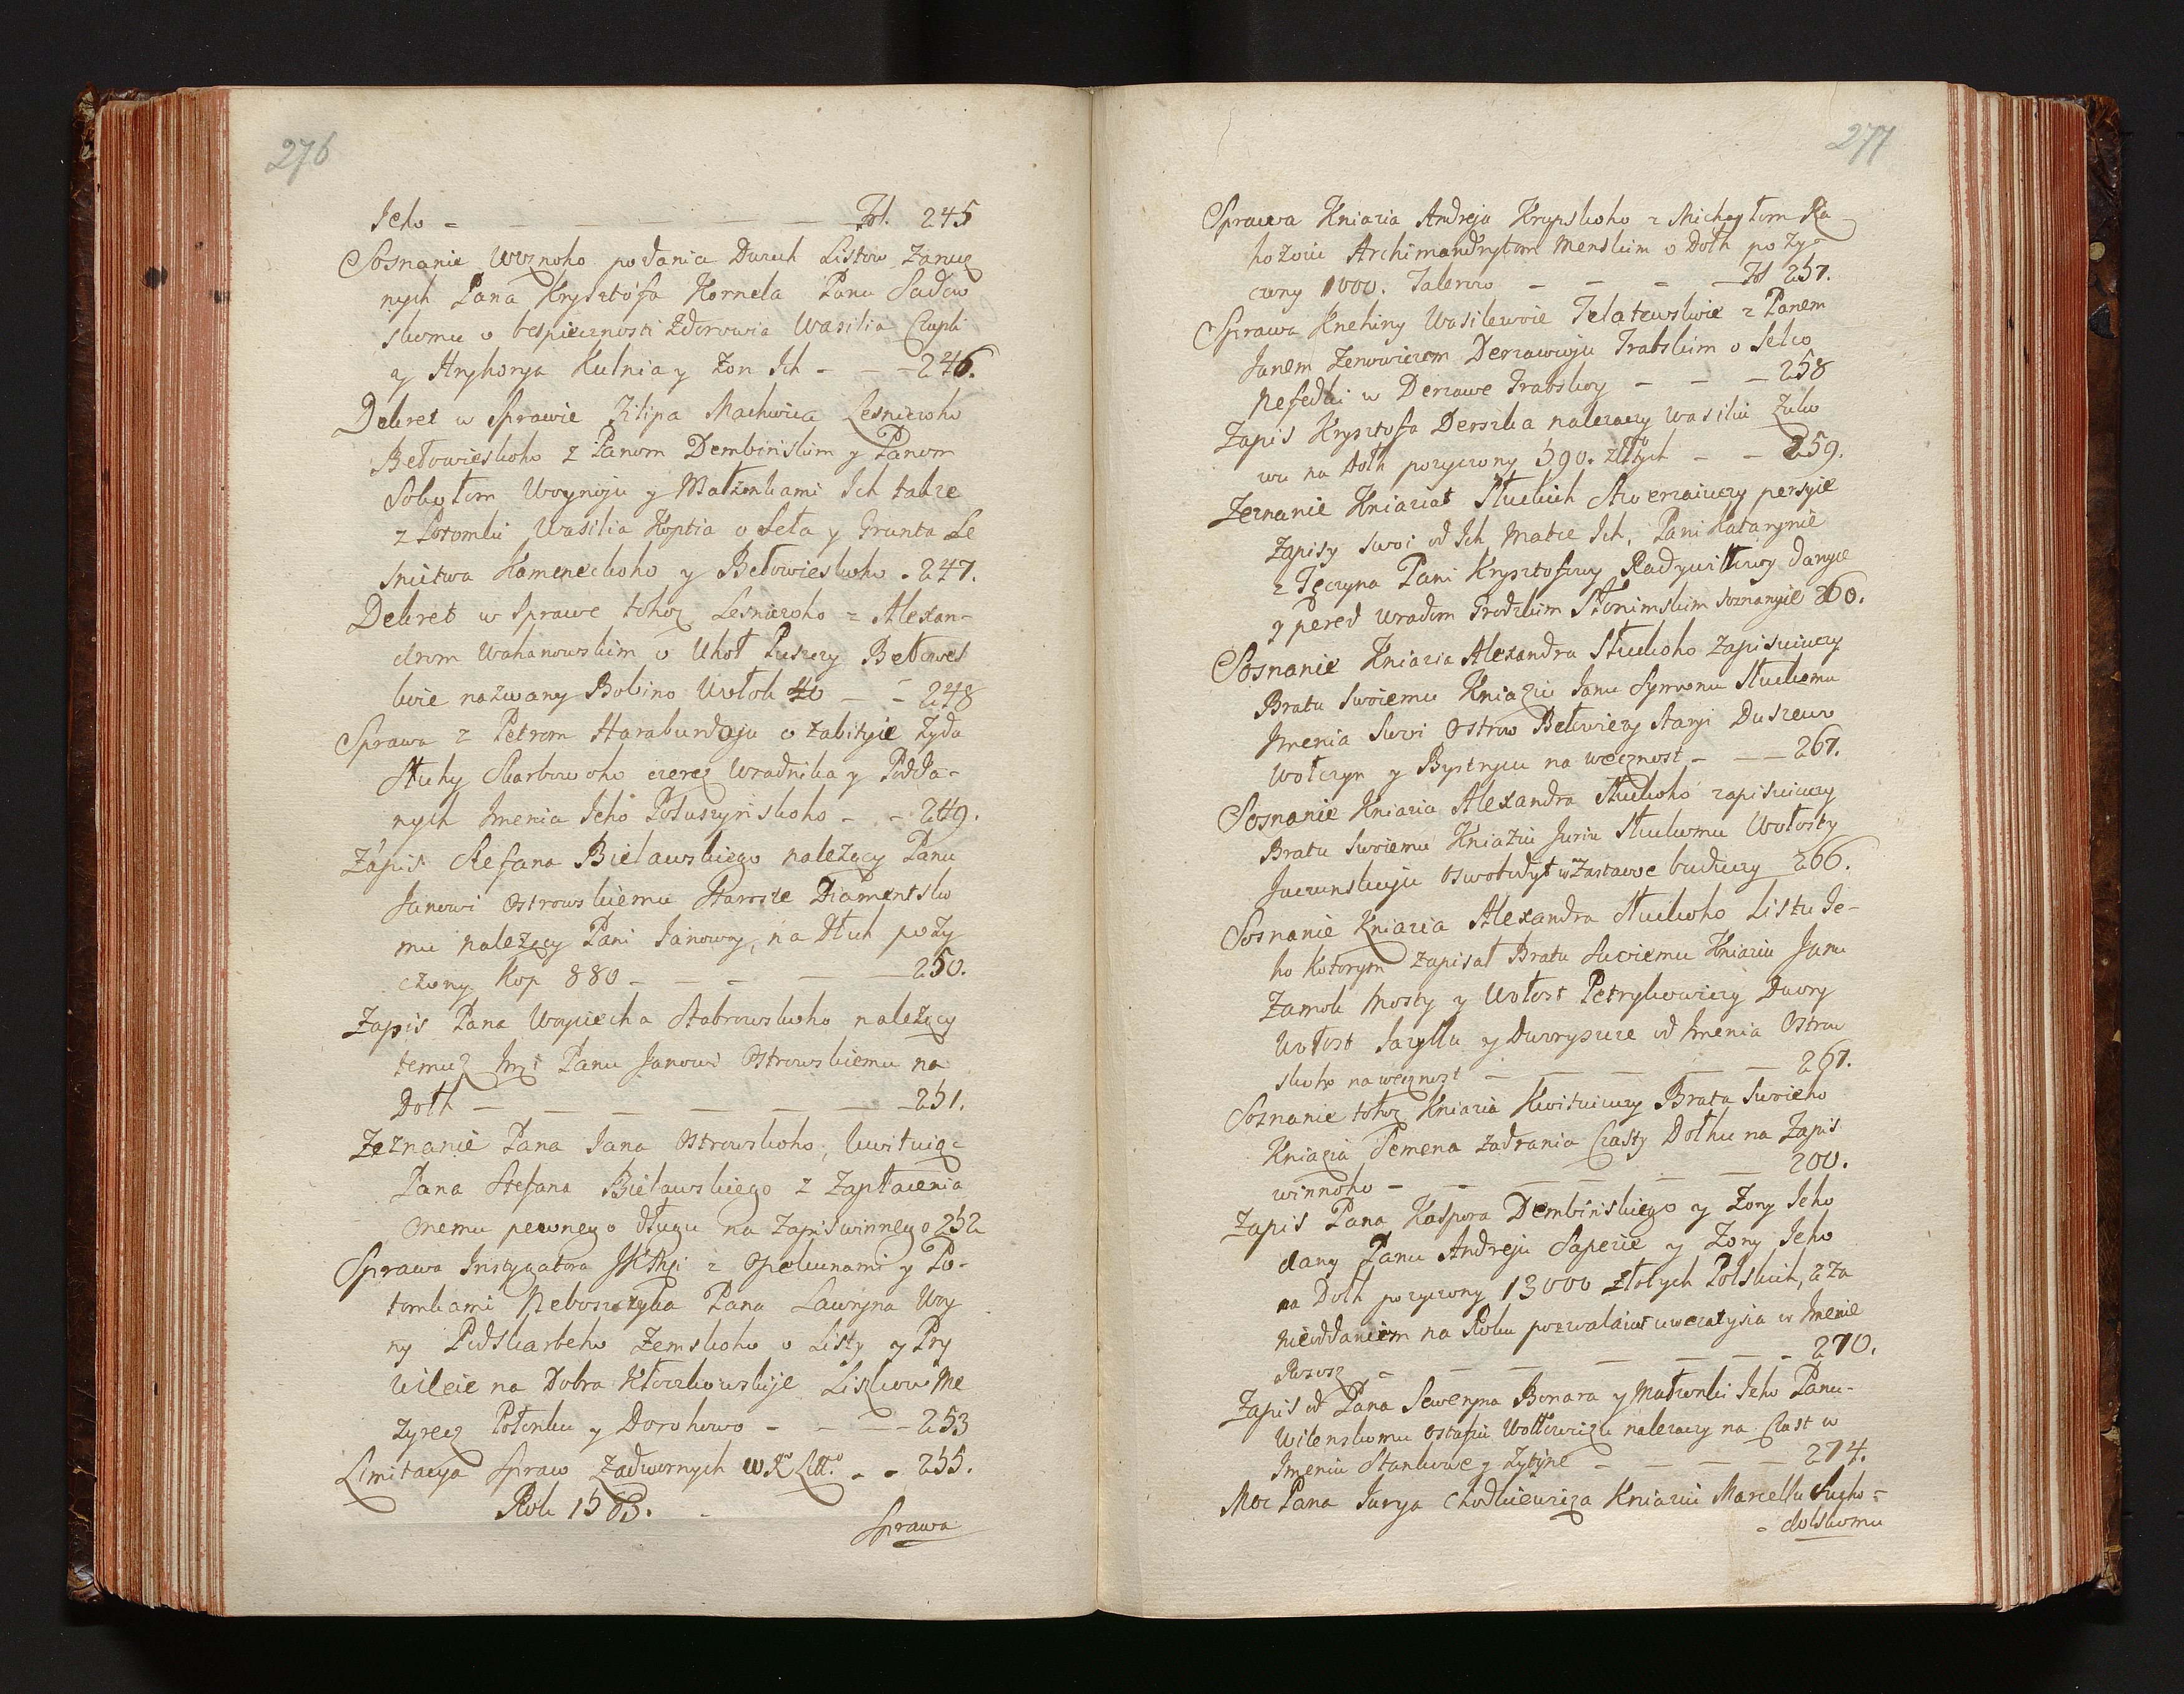 276
Jeho = — — — — Fol. 245
Sosnanie Woznoho podania Dwuch Listow Zarucz
nych Pana Krysztofa Kornela Panu Sadow
skomu o bespiecznosti Zdorowia Wasilia Czupli
y Hryhorya Kulnia y Zon Ich - - - 246.
Dekret w Sprawie Filipa Machwica Lesniczoho
Bełowieskoho z Panom Dembinskim y Panom
Sokołom Woynoju y Małżonkami Ich także
z Potomki Wasilia Koptia o Seła y Grunta Le
snictwa Kameneckoho y Bełowieskoho . 247.
Dekret w Sprawe tohoz Lesniczoho z Alexan-
drom Wahanowskim o Uhoł Puszczy Bełowes
kuie nazwany Bobino Wołok 40 - - 248
Sprawa z Petrom Haraburdoju o Zabityie Zyda
Słuhy Skarbowoho czerez Wradnika y Podda-
nych Imenia Jeho Połuszynskoho - - 249.
Zapis Stefana Bielawskiego należący Panu
Janowi Ostrowskiemu Staroscie Diamentsko
mu należący Pani Janowey, na Dłuh pozy
czony Kop 880 - - - - 250.
Zapis Pana Woyciecha Stabrowskoho należący
temuz Jmci Panu Janowi Ostrowskiemu na
Dołh - - - - - - 251.
Zeznanie Pana Jana Ostrowskoho, kwituiąc
Pana Stefana Bielawskiego z Zapłacenia
Onemu pewnego długu na Zapis winnego 252
Sprawa Instygatora JKMci z Opekunami y Po-
tomkami Neboszczyka Pana Lawryna Woy
ny Podskarbeho Zemskoho o Listy y Pry
wileie na Dobra Kłoczkowskije Liszkow Me
zyrecz Połonku y Dorohowo - - - 253
Limitacya Spraw Zadwornych W. X. Litt.o - - 255.
Roku 1563.
Sprawa
277
Sprawa Kniazia Andreja Krupskoho z Michayłom Ra
hozoiu Archimandrytom Menskim o Dołh pozy-
czony 1000. Talerow - - - - Fol 257.
Sprawa Knehiny Wasilewoie Tolatowskoie z Panem
Janem Zenowiczom Derzawcoju Trabskim o Selco
Nefedki w Derzawe Trabskoy - - - 258
Zapis Krysztofa Derszka nalezaczy Wasiliu Zuko
wu na dołh pozyczony 590. złłtych - - 259.
Zeznanie Kniaziat Słuckich Stwerzaiuczy perszyie
Zapisy Swoi od Ich Matce Ich, Pani Katarynie
z Tęczyna Pani Krysztofowy Radziwiłłowoy danyie
y pered Uradom Grodzkim Słonimskim soznanyie 260.
Sosnanie Kniazia Alexandra Słuckoho Zapisuiuczy
Bratu Swoiemu Kniaziu Janu Symonu Słuckomu
Imenia Swoi Ostrow Bełowiezy Staryi Duszewo
Wołczyn y Bystrycu na wecznost - - - 261.
Sosnanie Kniazia Alexandra Słuckoho zapisuiuczy
Bratu Swoiemu Kniaziu Juriu Słuckomu Wołosty
Juczunskuju oswobodyt w Zastawe buduczy 266.
Sosnanie Kniazia Alexandra Słuckoho Listu Je-
ho Kotorym Zapisał Bratu Swoiemu Kniaziu Janu
Zamok Mosty y Wołost Petrykowiczy Dwory
Wołost Jazylla y Dworyszcze od Imenia Ostrow
skoho na wecznost - - - - - 267.
Sosnanie tohoz Kniazia Kwituiuczy Brata Swoieho
Kniazia Semena zabrania Czasty Dołhu na Zapis
winnoho - - - - - - 200.
Zapis Pana Kaspora Dembinskiego y Zony Jeho
dany Panu Andreju Sapezie y Zony Jeho
na Dołh pozyczony 13000 złotych Polskich, a za
nieoddaniem na Roku pozwalaiut uwezatysia w Imenie
Rososz - - - - - - 270.
Zapis od Pana Seweryna Bonara y Małzonki Jeho Panu-
Wilenskomu Ostafiu Wołłowiczu nalezaczy na Czast w
Imeniu Stankowe y Zytyne - - - - 274.
Moc Pana Jurya Chodkiewicza Kniaziu Marcellu Sucho-
dolskomu